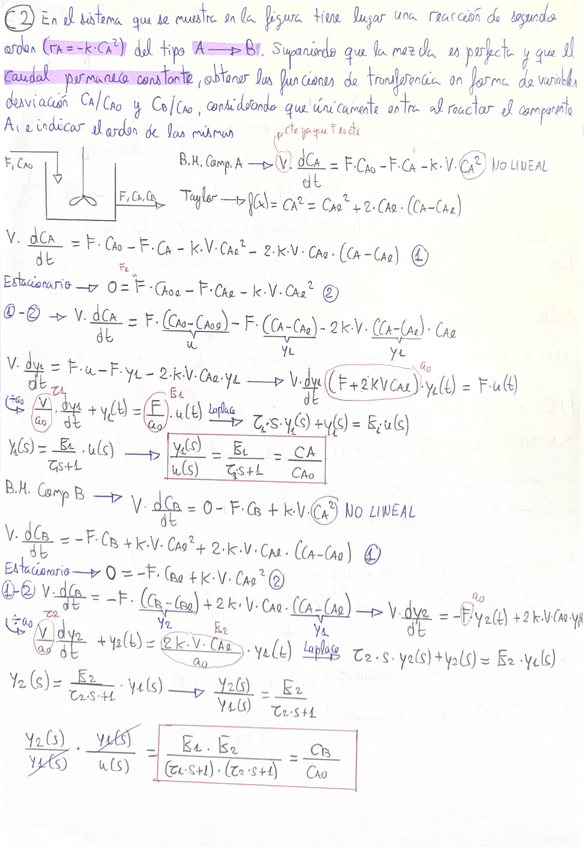 C2 En el sistema que se muestra en la figura tiene lugar una reacción de segundo
orden (rA = -k·CA²) del tipo A → B. Suponiendo que la mezcla es perfecta y que el
caudal permanece constante, obtener las funciones de transferencia en forma de variables
desviación CA/CA0 y CB/CA0, considerando que únicamente entra al reactor el componente
A, e indicar el orden de las mismas
cte ya que F es cte
F, CA0
B.M. Comp. A → V· dCA/dt = F·CA0 - F·CA - k·V·CA² NO LINEAL
F, CA, CB
Taylor → f(x) = CA² = CAe² + 2·CAe·(CA-CAe)
V· dCA/dt = F·CA0 - F·CA - k·V·CAe² - 2·k·V·CAe·(CA-CAe) ①
Estacionario → 0 = F·CA0e - F·CAe - k·V·CAe² ②
Fe
①-② → V· dCA/dt = F·(CA0-CA0e) - F·(CA-CAe) - 2k·V·(CA-CAe)·CAe
u y1 y1
V· dy1/dt = F·u - F·y1 - 2·k·V·CAe·y1 → V· dy1/dt (F+2KVCAe)·y1(t) = F·u(t)
a0
÷a0 τ1 K1
V/a0 · dy1/dt + y1(t) = F/a0 · u(t) Laplace → τ1·s·y1(s) + y1(s) = K1·u(s)
y1(s) = K1/(τ1·s+1) · u(s) → y1(s)/u(s) = K1/(τ1·s+1) = CA/CA0
B.M. Comp B → V· dCB/dt = 0 - F·CB + k·V·CA² NO LINEAL
V· dCB/dt = -F·CB + k·V·CAe² + 2·k·V·CAe·(CA-CAe) ①
Estacionario → 0 = -F·CBe + k·V·CAe² ②
①-② V· dCB/dt = -F·(CB-CBe) + 2k·V·CAe·(CA-CAe) → V· dy2/dt = -F·y2(t) + 2k·V·CAe·y1
y2 y1 a0
÷a0 τ2 K2
V/a0 dy2/dt + y2(t) = 2k·V·CAe/a0 · y1(t) Laplace → τ2·s·y2(s) + y2(s) = K2·y1(s)
y2(s) = K2/(τ2·s+1) · y1(s) → y2(s)/y1(s) = K2/(τ2·s+1)
y2(s)/y1(s) · y1(s)/u(s) = K1·K2/((τ1·s+1)·(τ2·s+1)) = CB/CA0